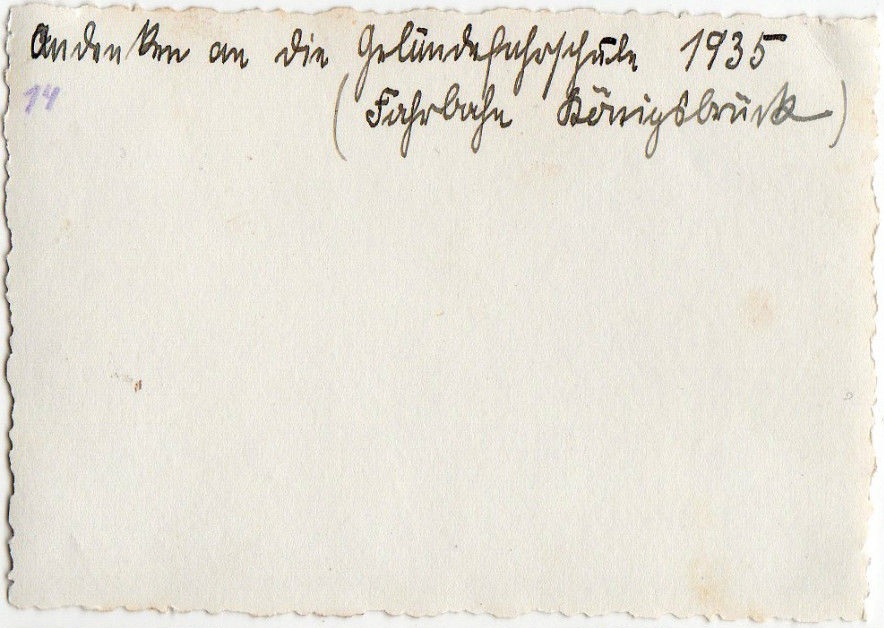 Andenken an die Geländefahrschule 1935
14
(Fahrbahn Königsbrück)